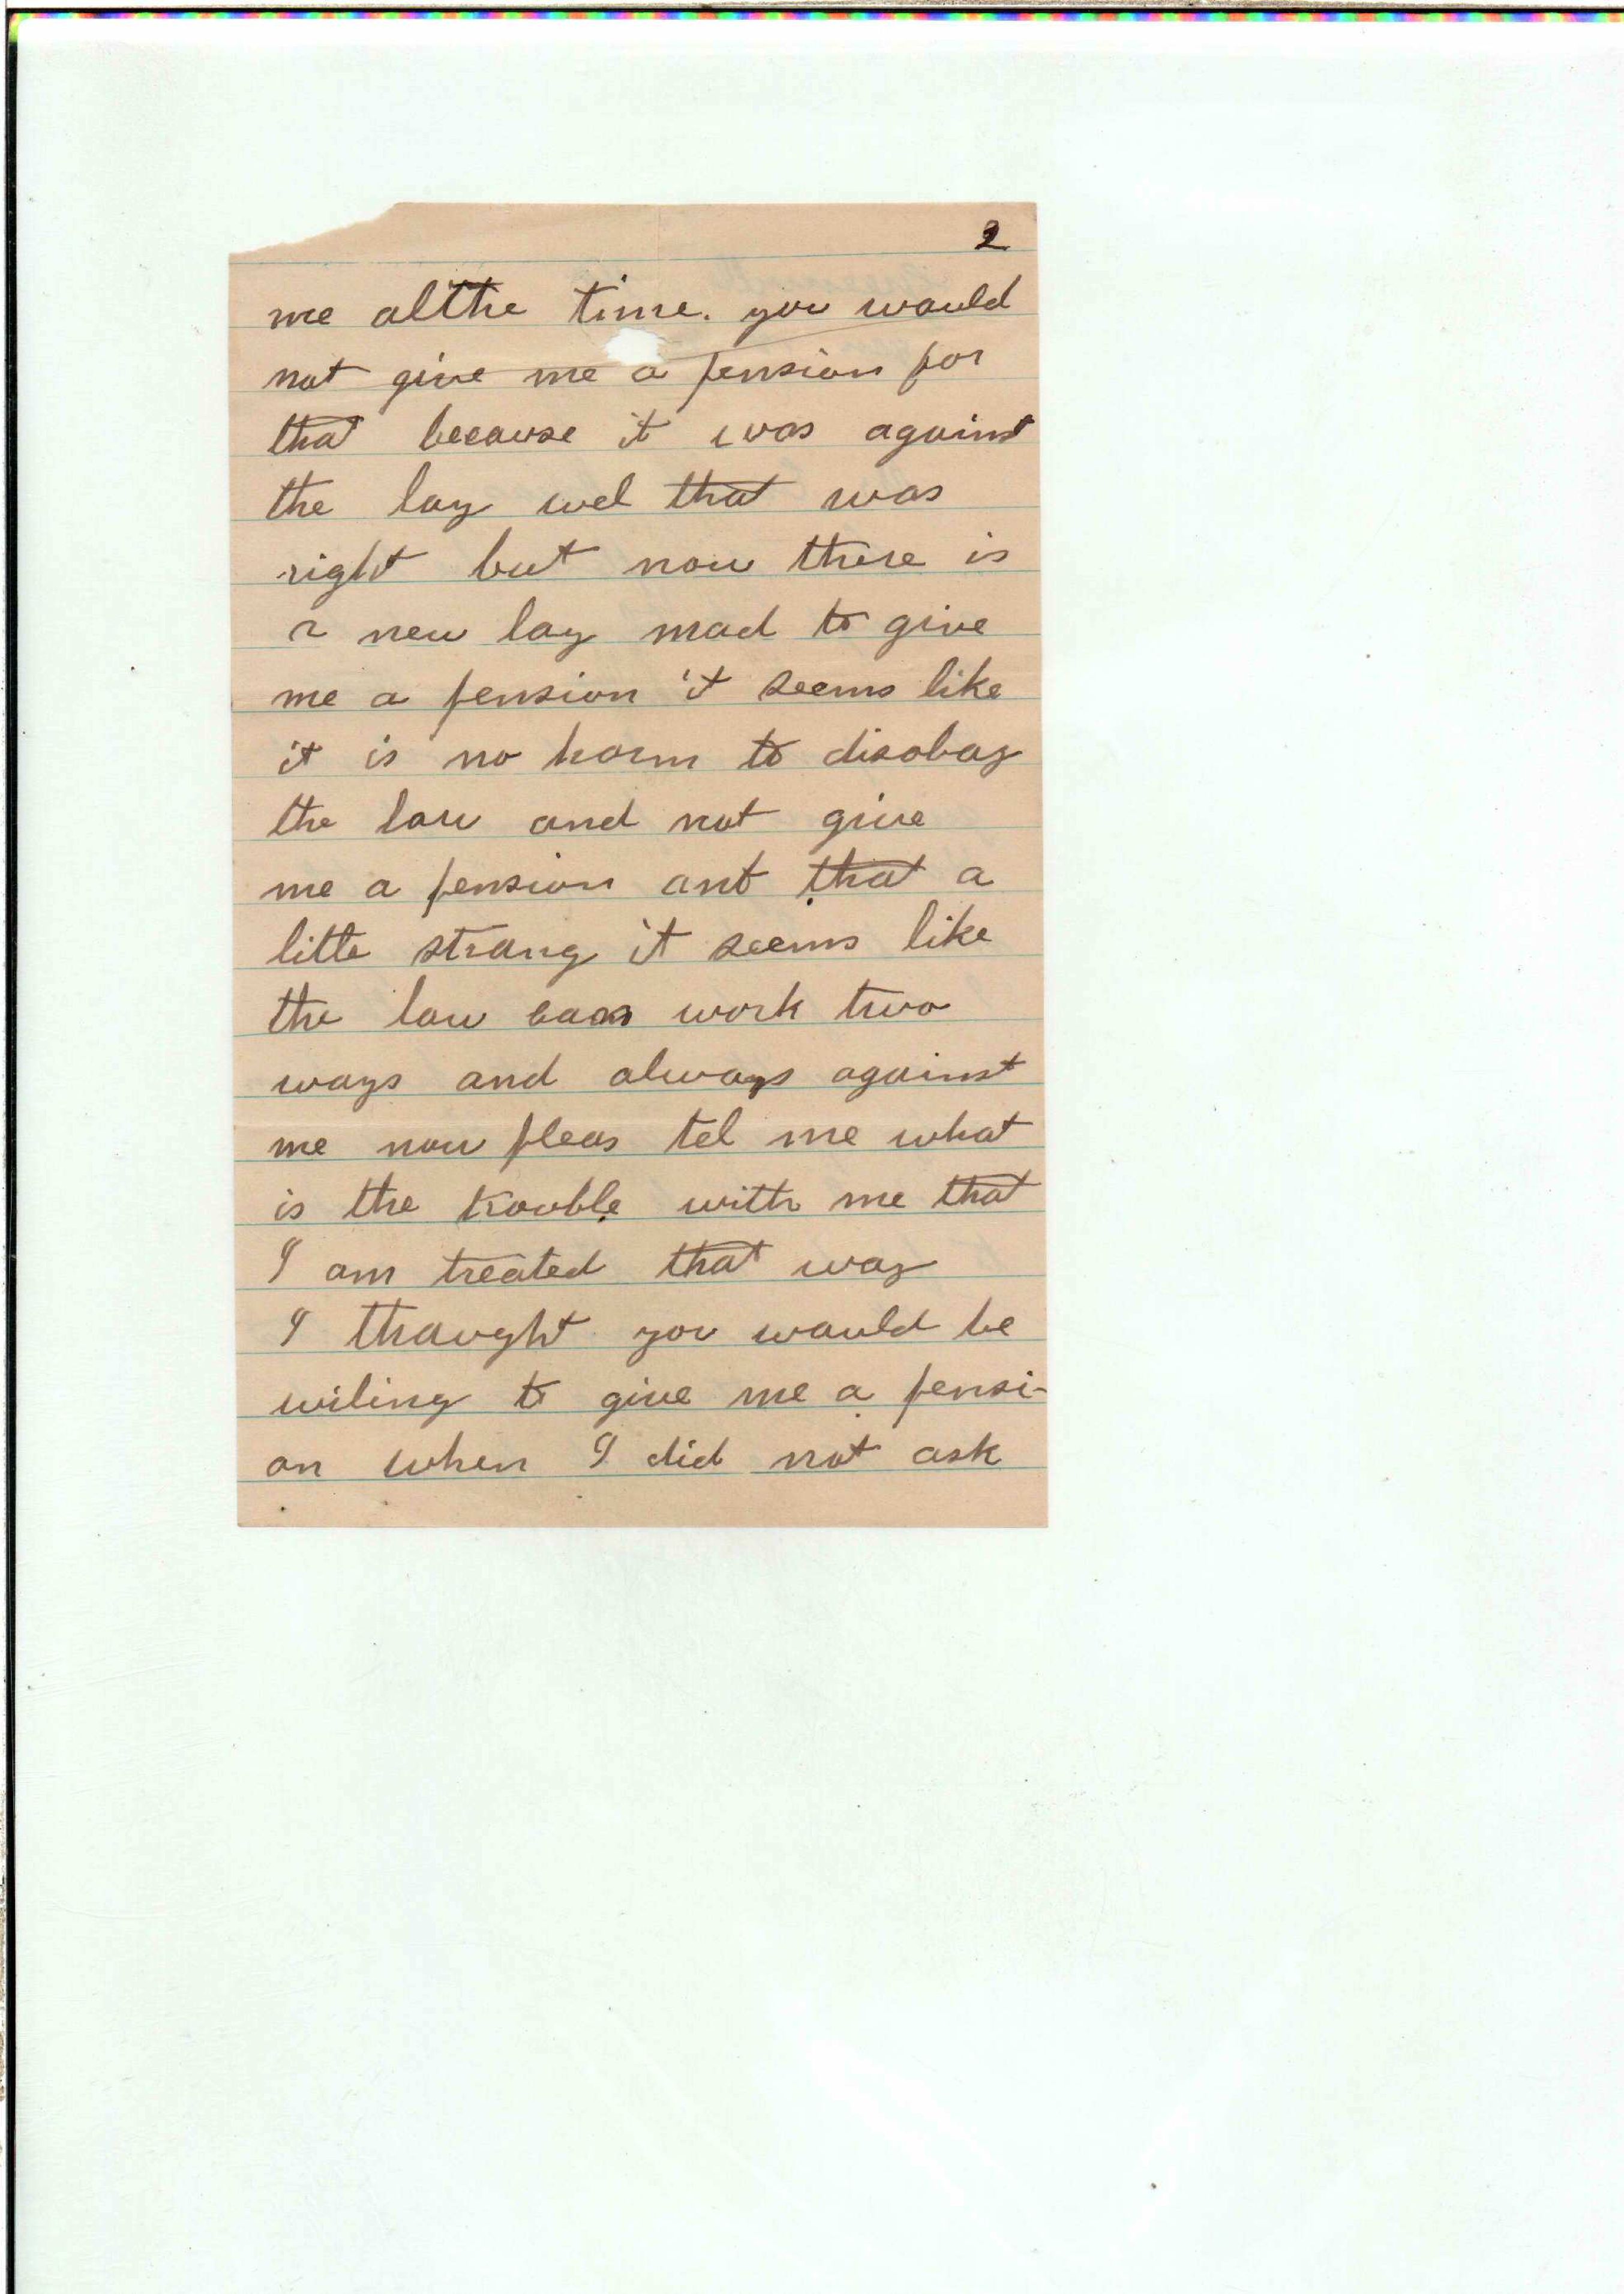 2
me althe time. you would
not give me a pension for
that because it was against
the lay wel that was
right but now there is
a new lay mad to give
me a pension it seems like
it is no harm to disobay
the law and not give
me a pension ant that a
litte strang it seems like
the law work two
ways and always against
me now pleas tel me what
is the trouble with me that
I am treated that way
I thought you would be
wiling to give me a pensi-
on when I did not ask